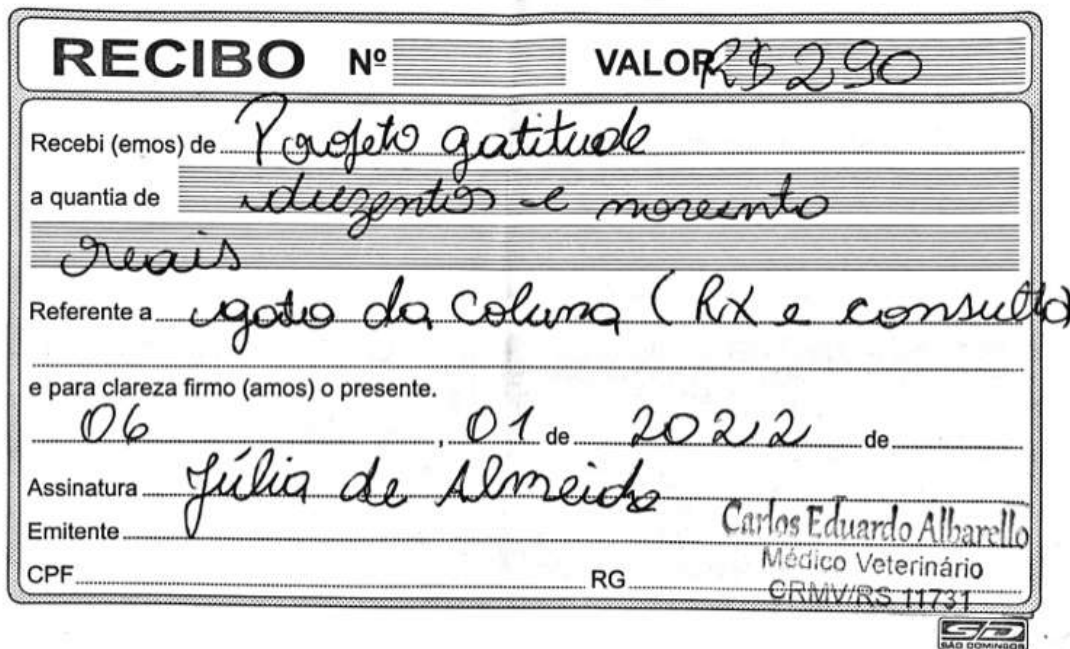 RECIBO Nº VALOR R$ 290
Recebi (emos) de Projeto gatitude
a quantia de duzentos e noventa
reais
Referente a gato da Coluna (RX e consulta)
e para clareza firmo (amos) o presente.
06, 01 de 2022 de
Assinatura Júlia de Almeida
Emitente Carlos Eduardo Albarello
Médico Veterinário
CPF RG CRMV/RS 11731
SD
SÃO DOMINGOS